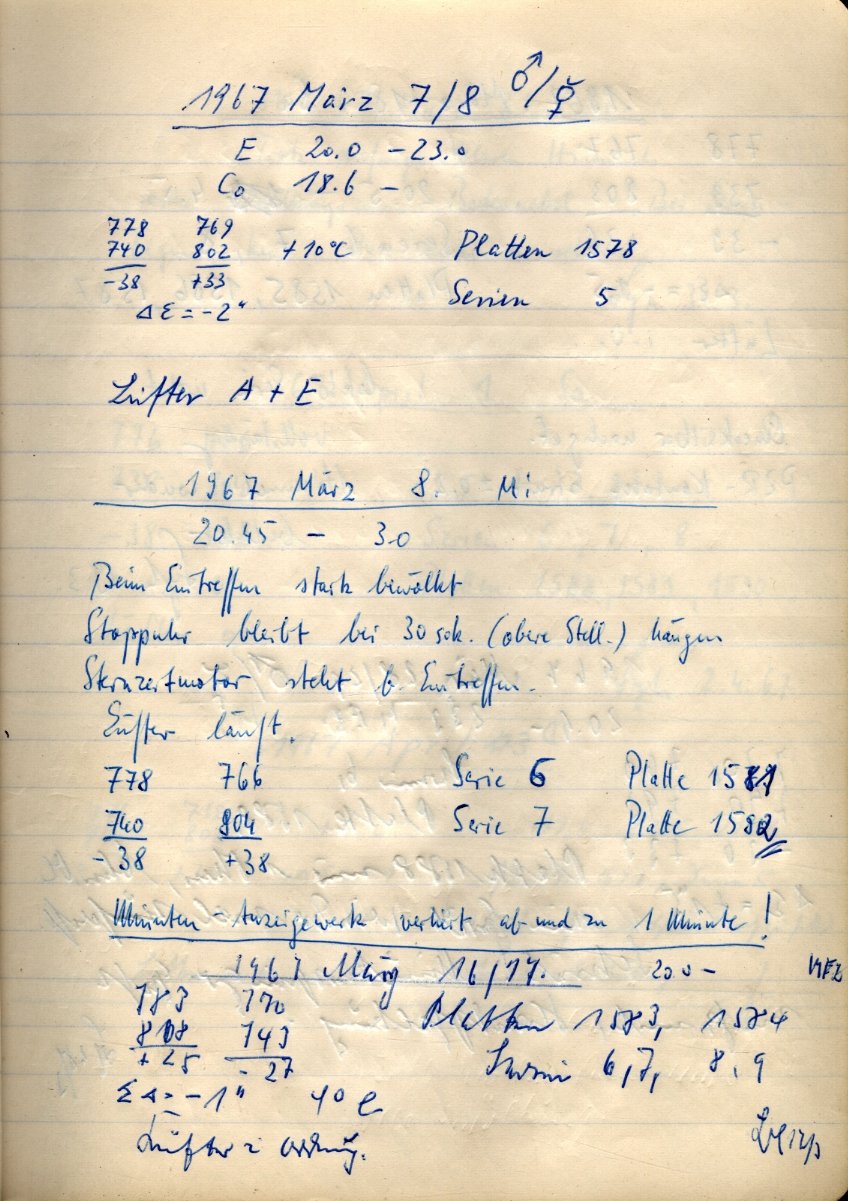 1967 März 7/8 ♂/☿
E 20.0 – 23.0
Co 18.6 –
778 769
740 802 +10°C Platten 1578
-38 +33
Δε = -2" Serien 5
Lüfter A + E
1967 März 8. Mi
20.45 – 3.0
Beim Eintreffen stark bewölkt
Stoppuhr bleibt bei 30 sek. (obere Stell.) hängen
Sternzeitmotor steht b. Eintreffen.
Lüfter läuft.
778 766 Serie 6 Platte 1581
740 804 Serie 7 Platte 1582
-38 +38
Minuten-Anzeigewerk verliert ab und zu 1 Minute!
1967 März 16/17. 20.0 – MEZ
783 770 Platten 1583, 1584
808 743
+25 -27 Serien 6, 7, 8, 9
= -1"
Lüfter